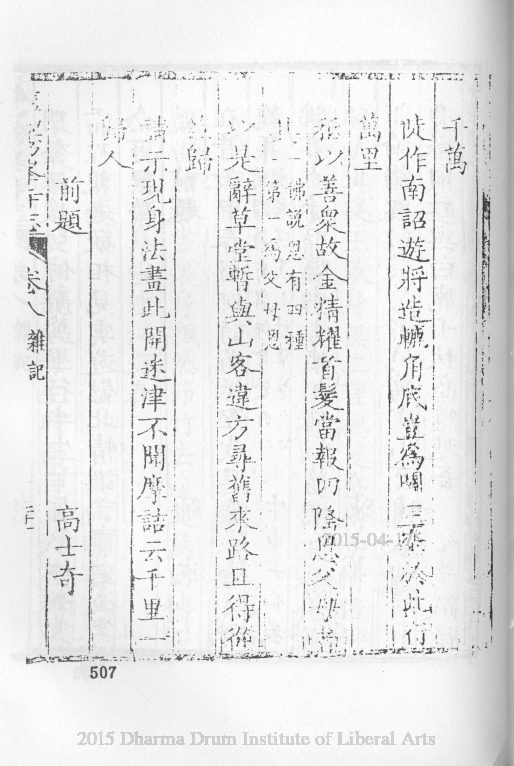 千萬
陡作南詔遊將造轆角底豈為開三乘於此行
萬里
以善衆故金精耀首髮當報四隆恩父母
佛說恩有四種
第一為父母恩
以是辭草堂暫與山客違方尋舊來路且得從
歸
請示現身法盡此開迷津不聞摩詰云千里一
歸人
前題
高士奇
卷八
雜記
507
2015-04-1
2015 Dharma Drum Institute of Liberal Arts